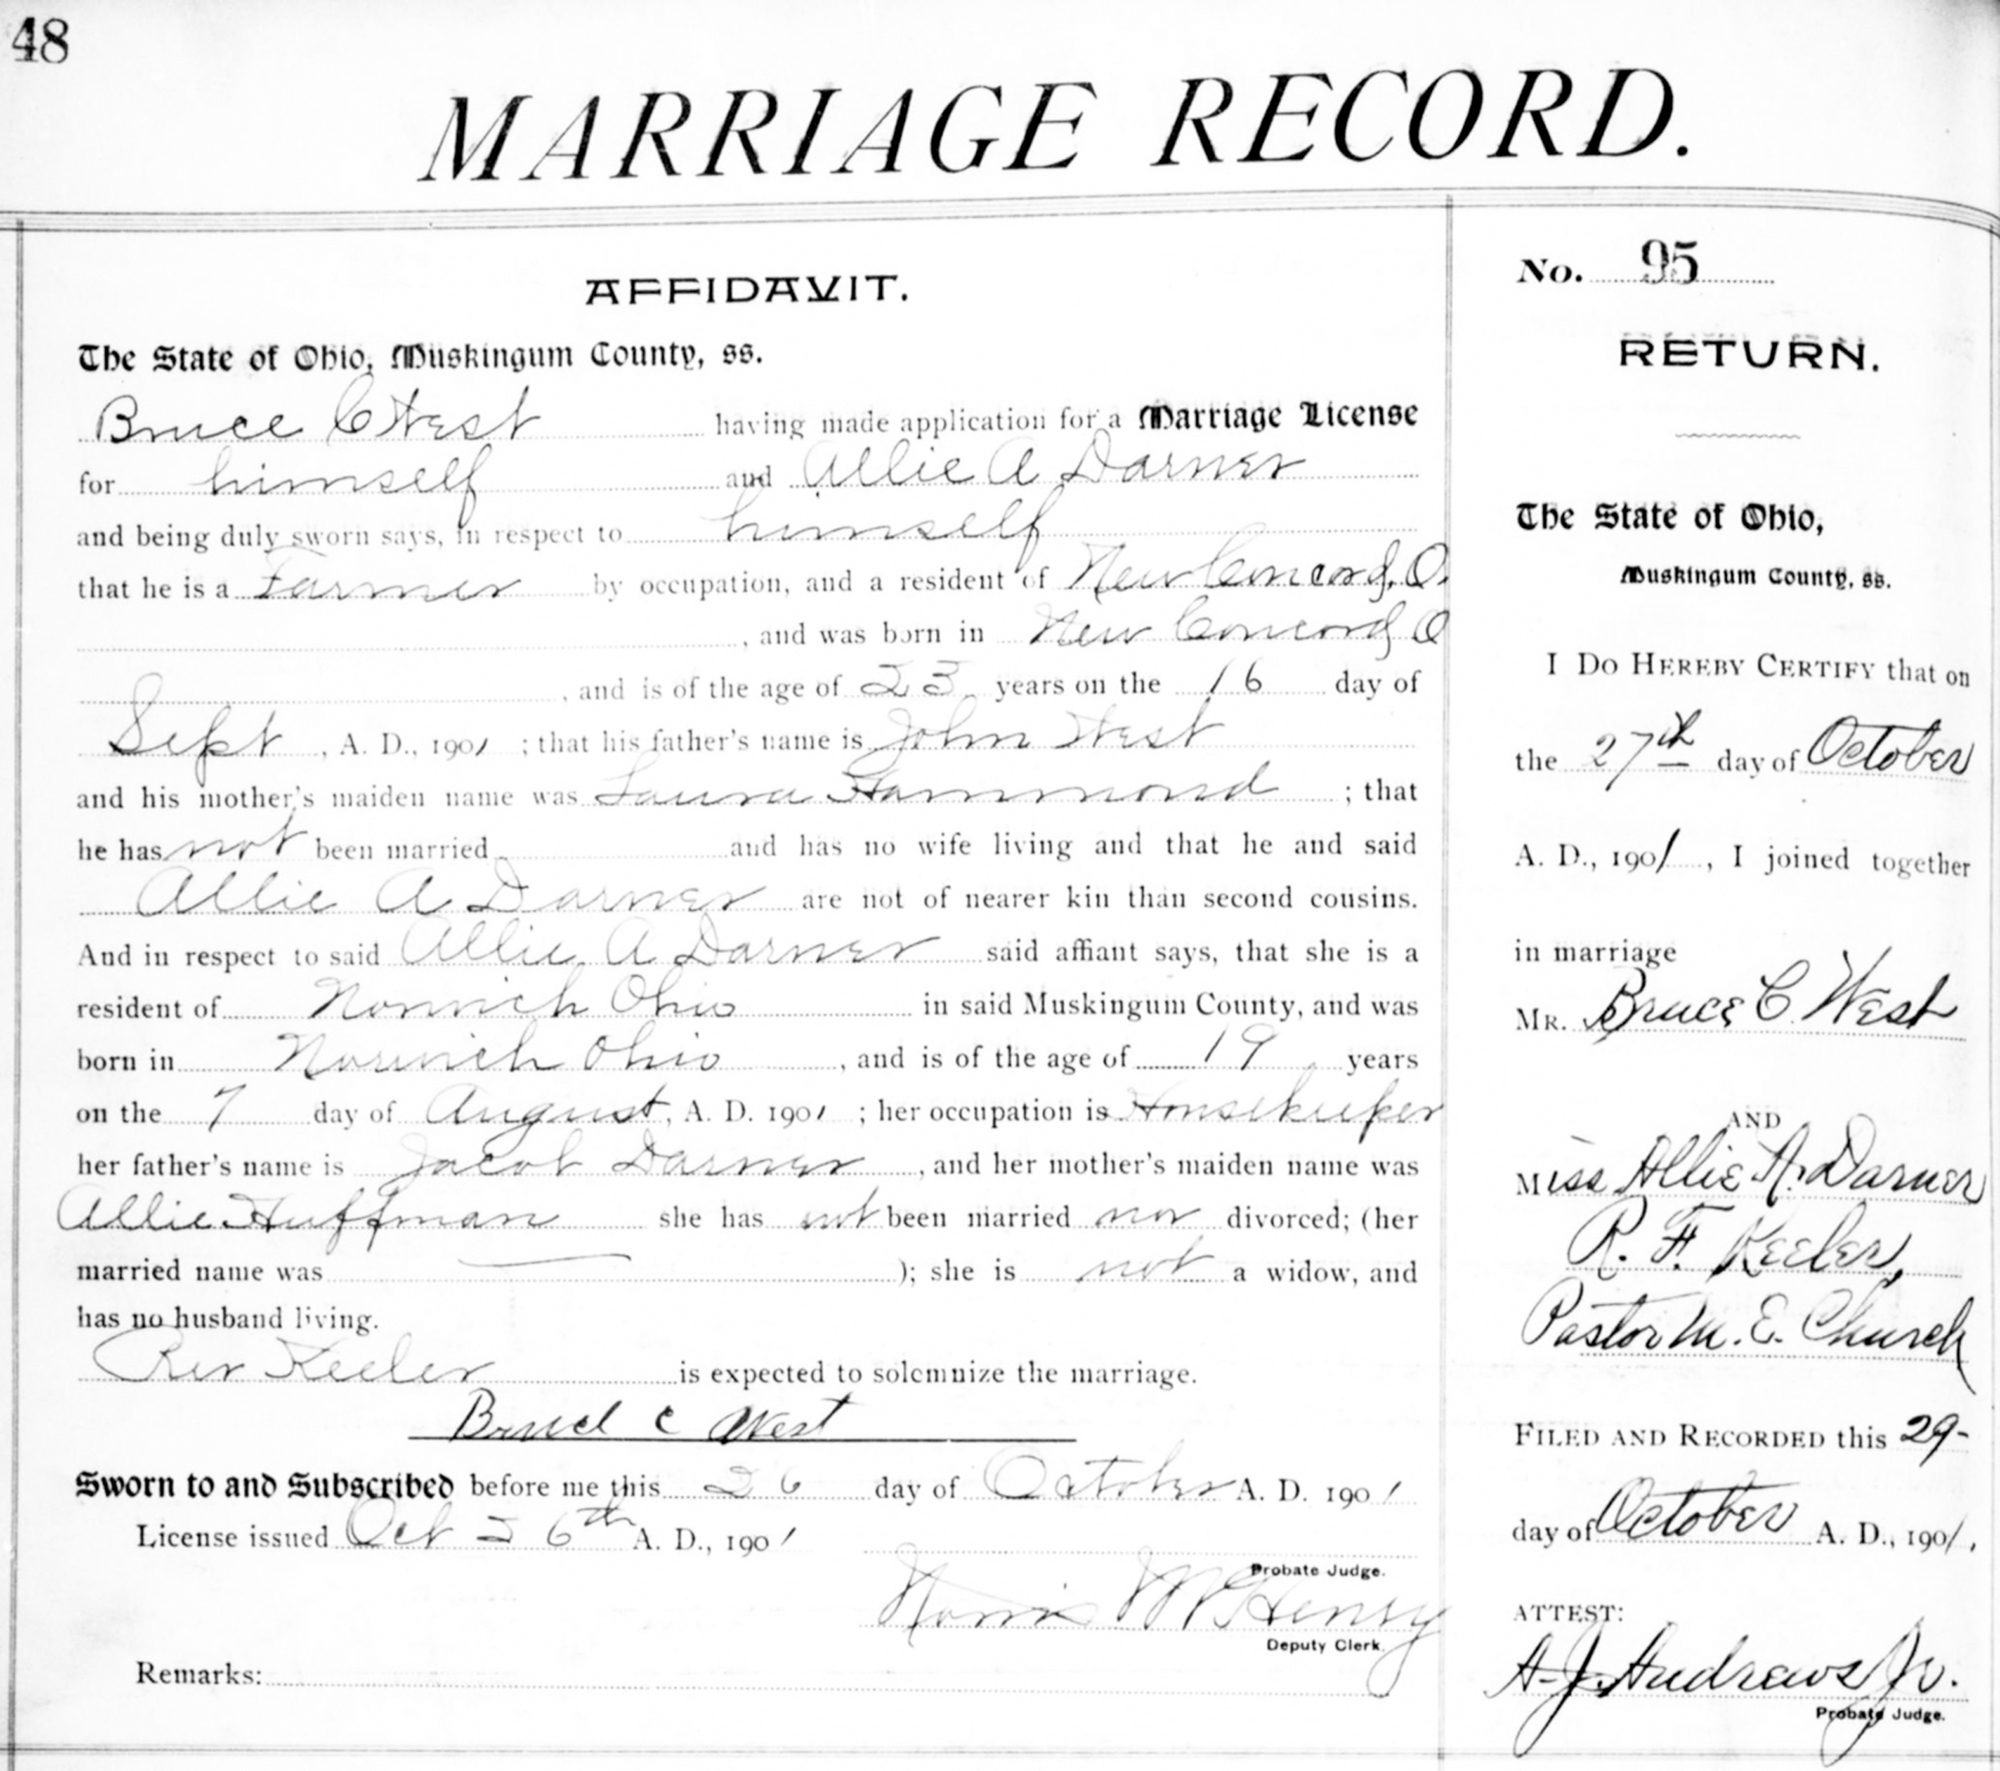 48
MARRIAGE RECORD.
AFFIDAVIT.
The State of Ohio, Muskingum County, ss.
Bruce C West having made application for a Marriage License
for himself and Allie A Darner
and being duly sworn says, in respect to himself
that he is a Farmer by occupation, and a resident of New Concord, O.
, and was born in New Concord O
, and is of the age of 23 years on the 16 day of
Sept , A. D., 1901 ; that his father's name is John West
and his mother's maiden name was Laura Hammond ; that
he has not been married and has no wife living and that he and said
Allie A Darner are not of nearer kin than second cousins.
And in respect to said Allie A Darner said affiant says, that she is a
resident of Norwich Ohio in said Muskingum County, and was
born in Norwich Ohio , and is of the age of 19 years
on the 7 day of August, A. D. 1901 ; her occupation is Housekeeper
her father's name is Jacob Darner , and her mother's maiden name was
Allie Huffman she has not been married nor divorced; (her
married name was ); she is not a widow, and
has no husband living.
Rev Keeler is expected to solemnize the marriage.
Bruce C West
Sworn to and Subscribed before me this 26 day of October A. D. 1901
License issued Oct 26th A. D., 1901
Probate Judge.
Norris McHenry
Deputy Clerk.
Remarks:
No. 95
RETURN.
The State of Ohio,
Muskingum County, ss.
I DO HEREBY CERTIFY that on
the 27th day of October
A. D., 1901 , I joined together
in marriage
MR. Bruce C. West
AND
Miss Allie A. Darner
R. F. Keeler,
Pastor M. E. Church
FILED AND RECORDED this 29-
day of October A. D., 1901,
ATTEST:
A. J. Andrews Jr.
Probate Judge.